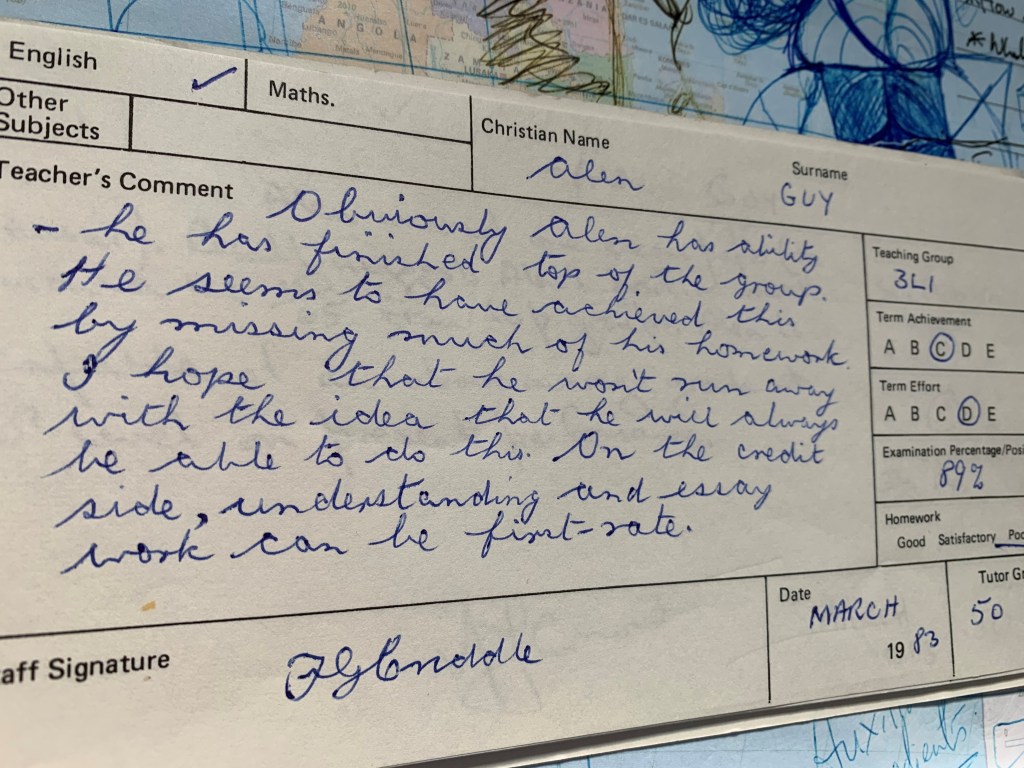 English ✓ Maths.
Other
Subjects
Christian Name Surname
Alen GUY
Teacher's Comment
Obviously Alen has ability
- he has finished top of the group.
He seems to have achieved this
by missing much of his homework.
I hope that he won't run away
with the idea that he will always
be able to do this. On the credit
side, understanding and essay
work can be first-rate.
Teaching Group
3L1
Term Achievement
A B C D E
Term Effort
A B C D E
Examination Percentage/Posi
89%
Homework
Good Satisfactory Poo
aff Signature
Date
MARCH
1983
Tutor Gr
50
ANGOLA